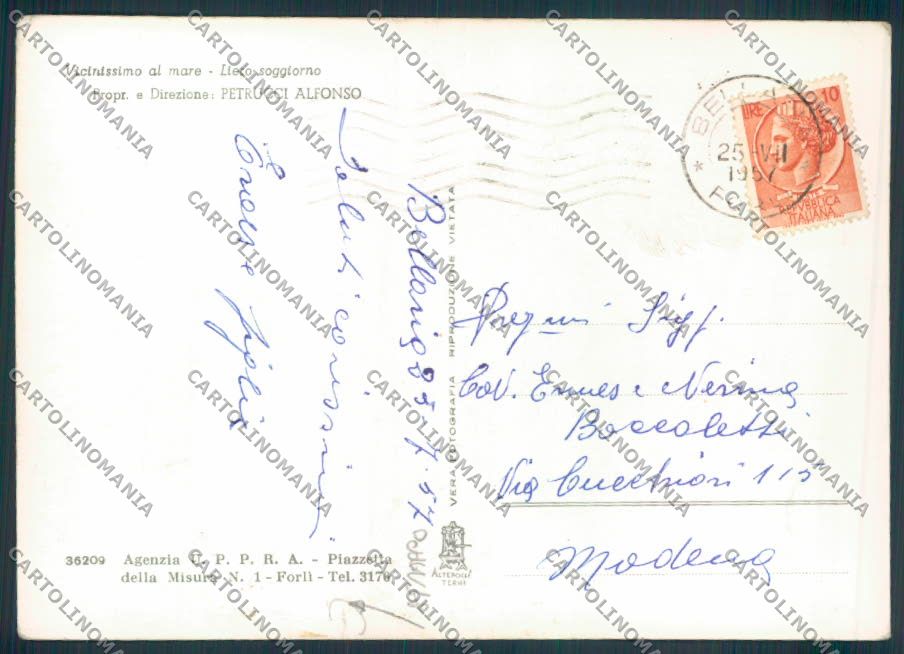 Vicinissimo al mare - Lieto soggiorno
Propr. e Direzione: PETRUCCI ALFONSO
BEL
25-VII
1957
LIRE 10
REPVBBLICA
ITALIANA
Bellaria 25-7-57
Saluti carissimi
VERA FOTOGRAFIA RIPRODUZIONE VIETATA
Pregmi Sigg.
Cav. Ennes e Nerina
Boccoletti
Via Cucchiari 115
Modena
36209 Agenzia U. P. P. R. A. - Piazzetta
della Misura N. 1 - Forlì - Tel. 3176
ALTEROCCA
TERNI
CARTOLINOMANIA